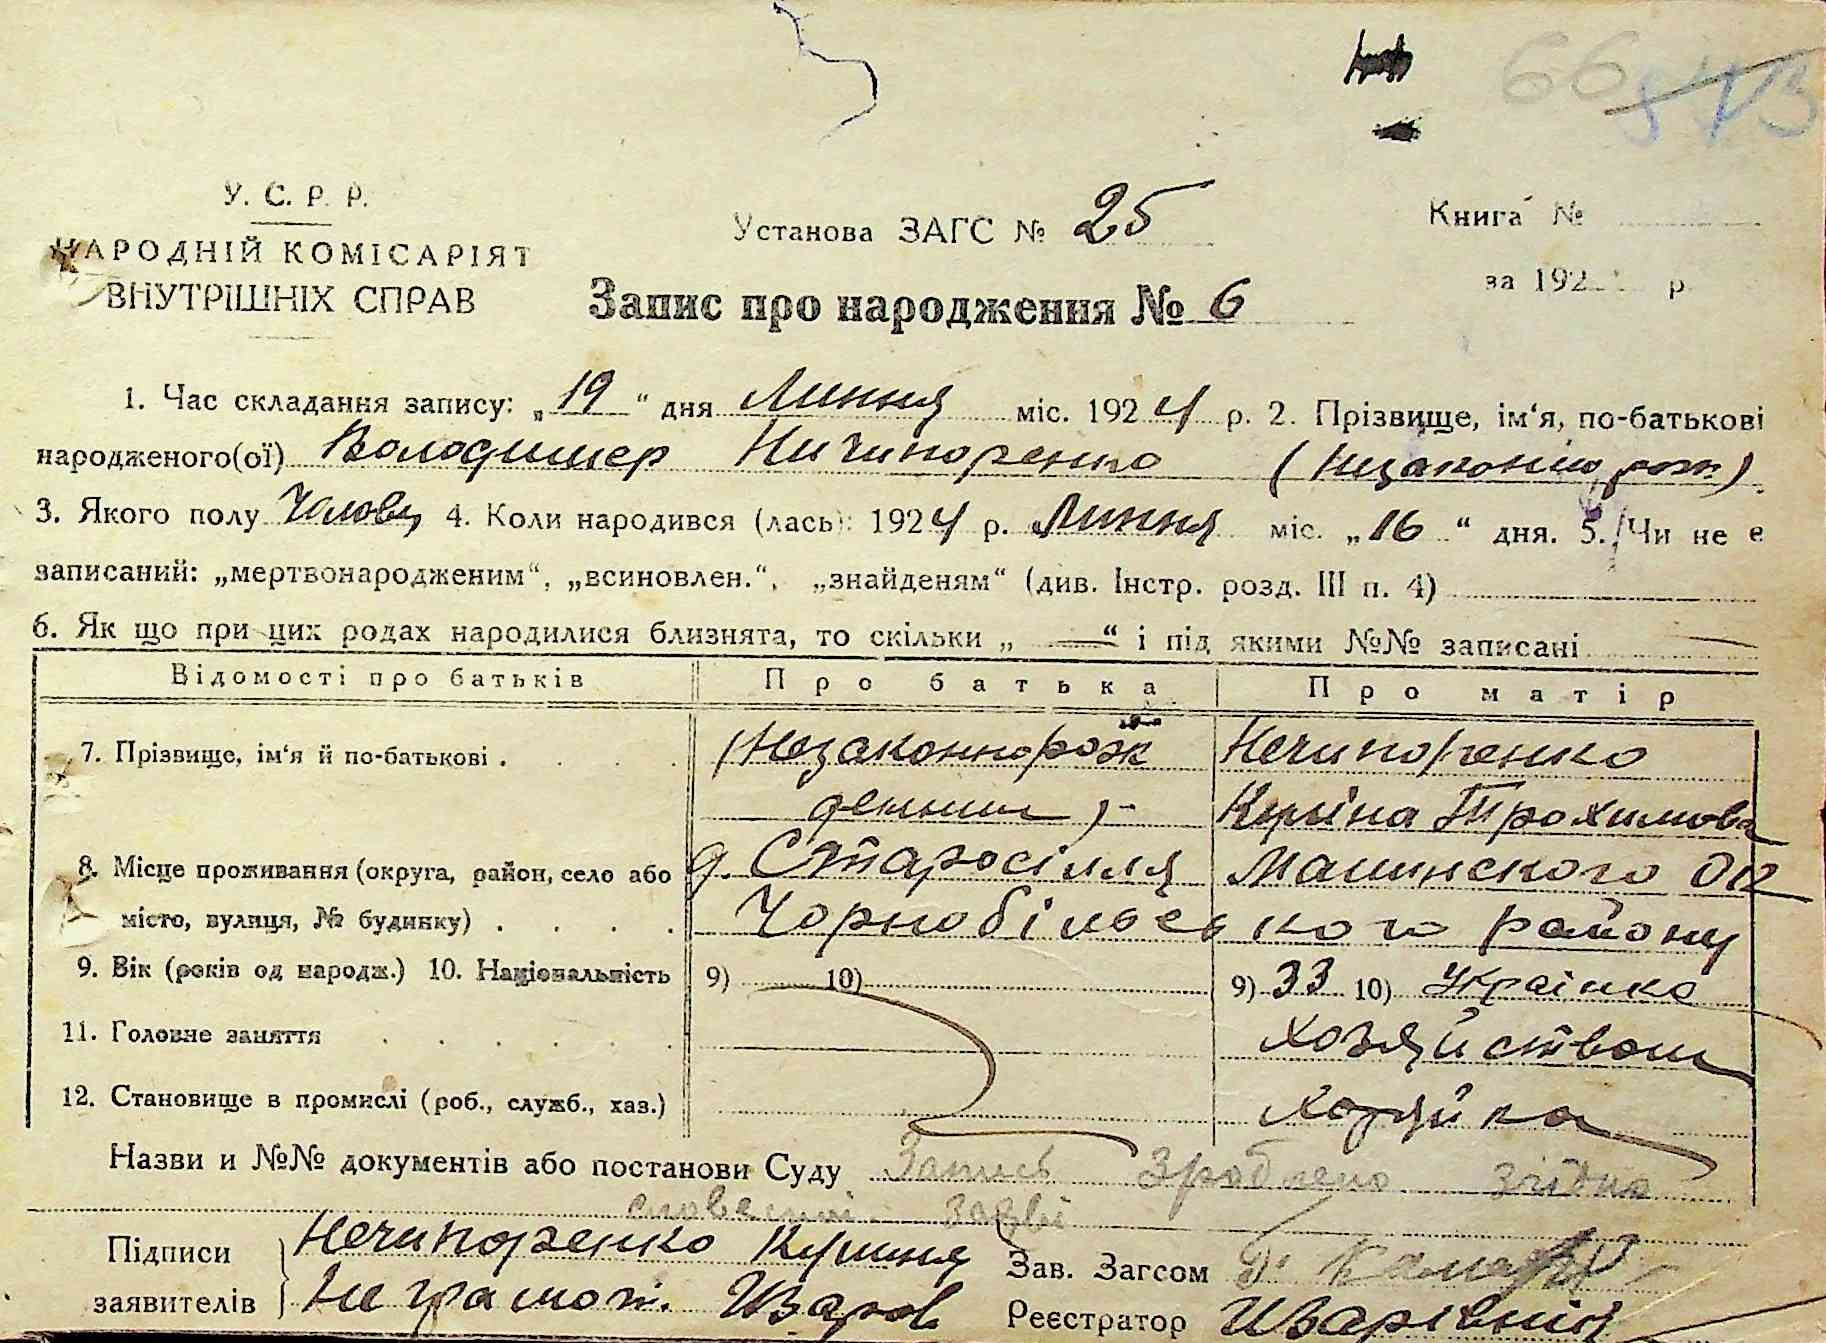 66
У. С. Р. Р.
НАРОДНІЙ КОМІСАРІЯТ
ВНУТРІШНІХ СПРАВ
Установа ЗАГС № 25
Книга №
за 192 р.
Запис про народження № 6
1. Час складання запису: „19“ дня Липня міс. 1924 р. 2. Прізвище, ім‘я, по-батькові
народженого(ої) Володимер Ничипоренко
3. Якого полу 4. Коли народився (лась): 1924 р. Липня міс. „16“ дня. 5. Чи не є
записаний: „мертвонародженим“, „всиновлен.“, „знайденям“ (див. Інстр. розд. III п. 4)
6. Як що при цих родах народилися близнята, то скільки „ — “ і під якими №№ записані
Відомості про батьків Про батька Про матір
7. Прізвище, ім‘я й по-батькові . (Незаконнорож Нечипоренко
денний) Трохимова
8. Місце проживання (округа, район, село або д. Старосілля Малинского Ок
місто, вулиця, № будинку) Чорнобільського району
9. Вік (років од народж.) 10. Національність 9) 10) 9) 33 10) Українка
11. Головне заняття хозяйством
12. Становище в промислі (роб., служб., хаз.) хозяйка
Назви и №№ документів або постанови Суду Запись зроблено згідно
словесної заяві
Підписи заявителів Нечипоренко
Неграмот.
Зав. Загсом
Реєстратор